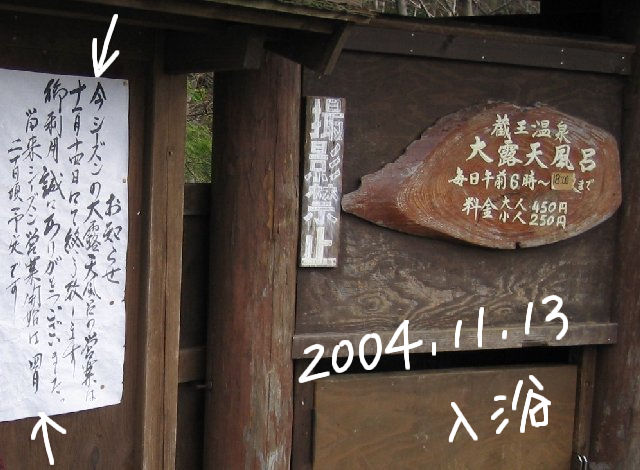 お知らせ。
今シーズンの大露天風呂の営業は
十一月十四日にて終了致します
御利用誠にありがとうございました。
尚来シーズン営業開始は四月
二十日頃予定です
撮影禁止
蔵王温泉
大露天風呂
毎日午前6時〜まで
料金 大人 450円
小人 250円
2004.11.13
入浴